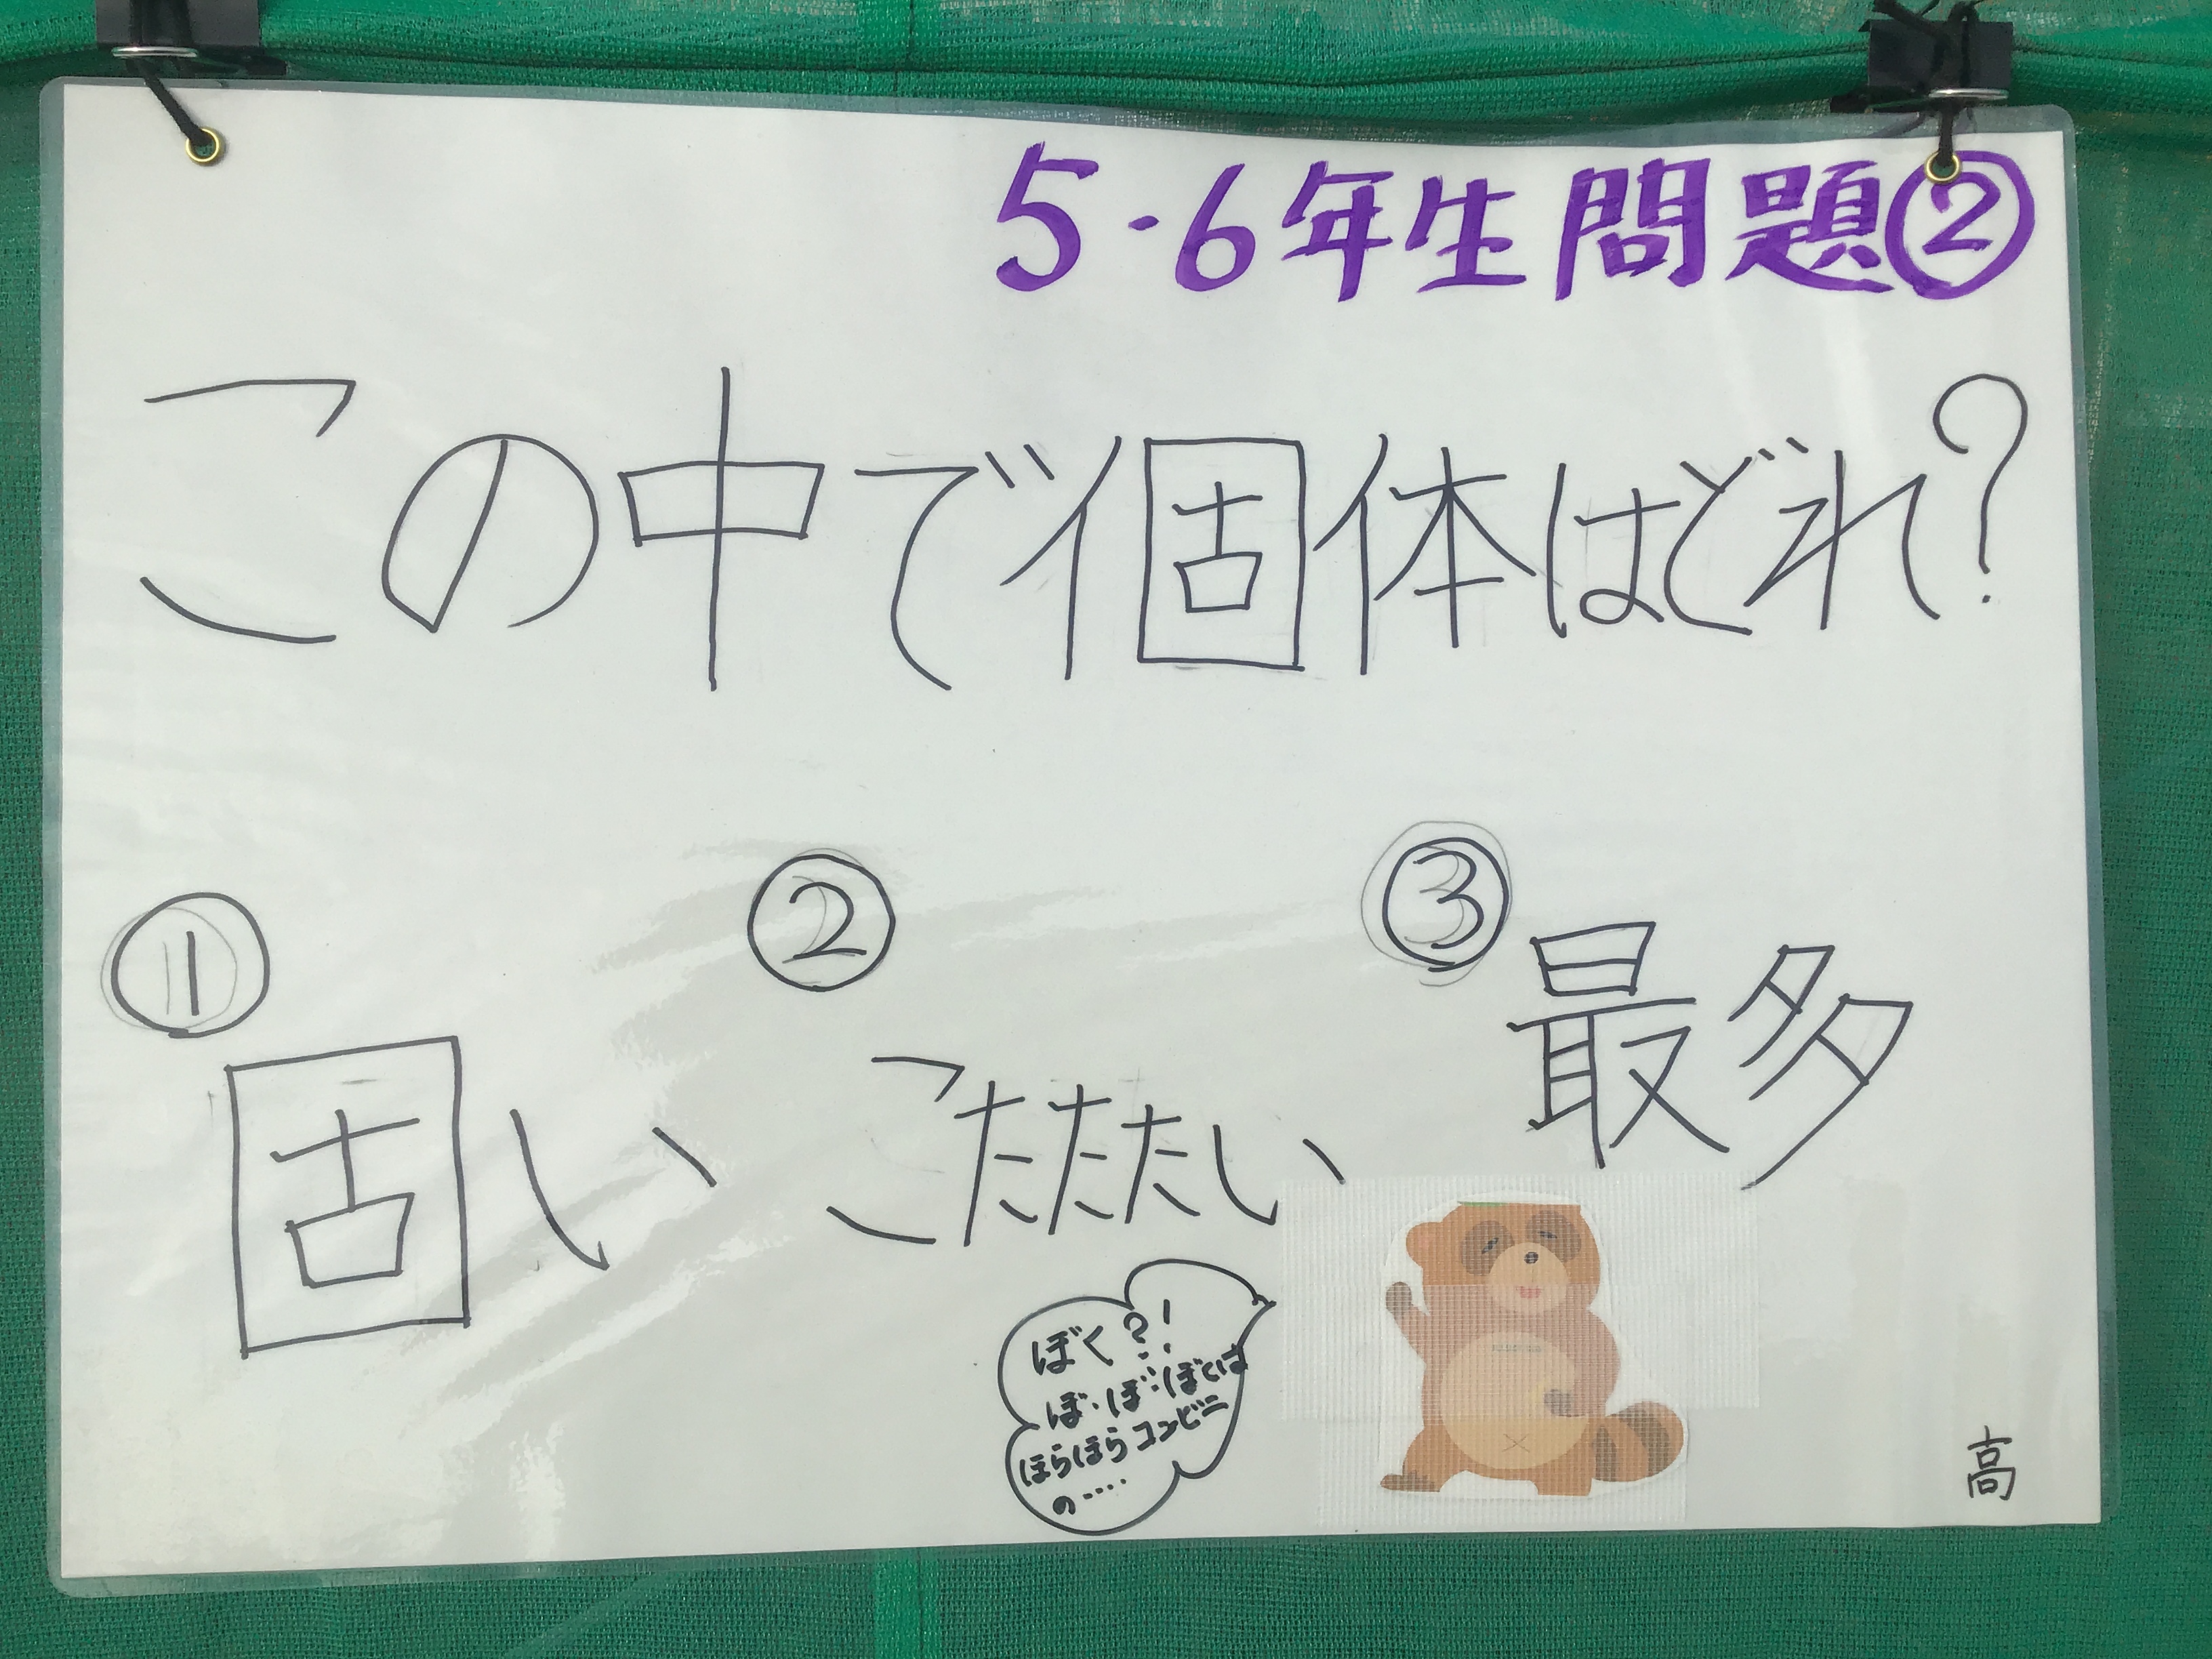 5・6年生問題②
この中で個体はどれ?
①
固い
②
こたたたい
③
最多
ぼく?!
ぼ・ぼ・ぼくは
ほらほらコンビニ
の・・・・
高